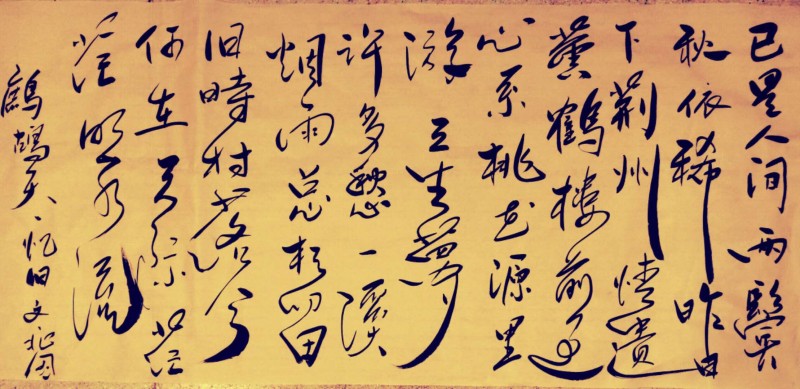 已是人间两鬓
秋依稀昨日
下荆州情遗
黄鹤楼前
心系桃花源里
游三生梦
许多愁一溪
烟雨总相留
旧時村落今
何在天际茫
茫明流
鹧鸪天、忆旧文